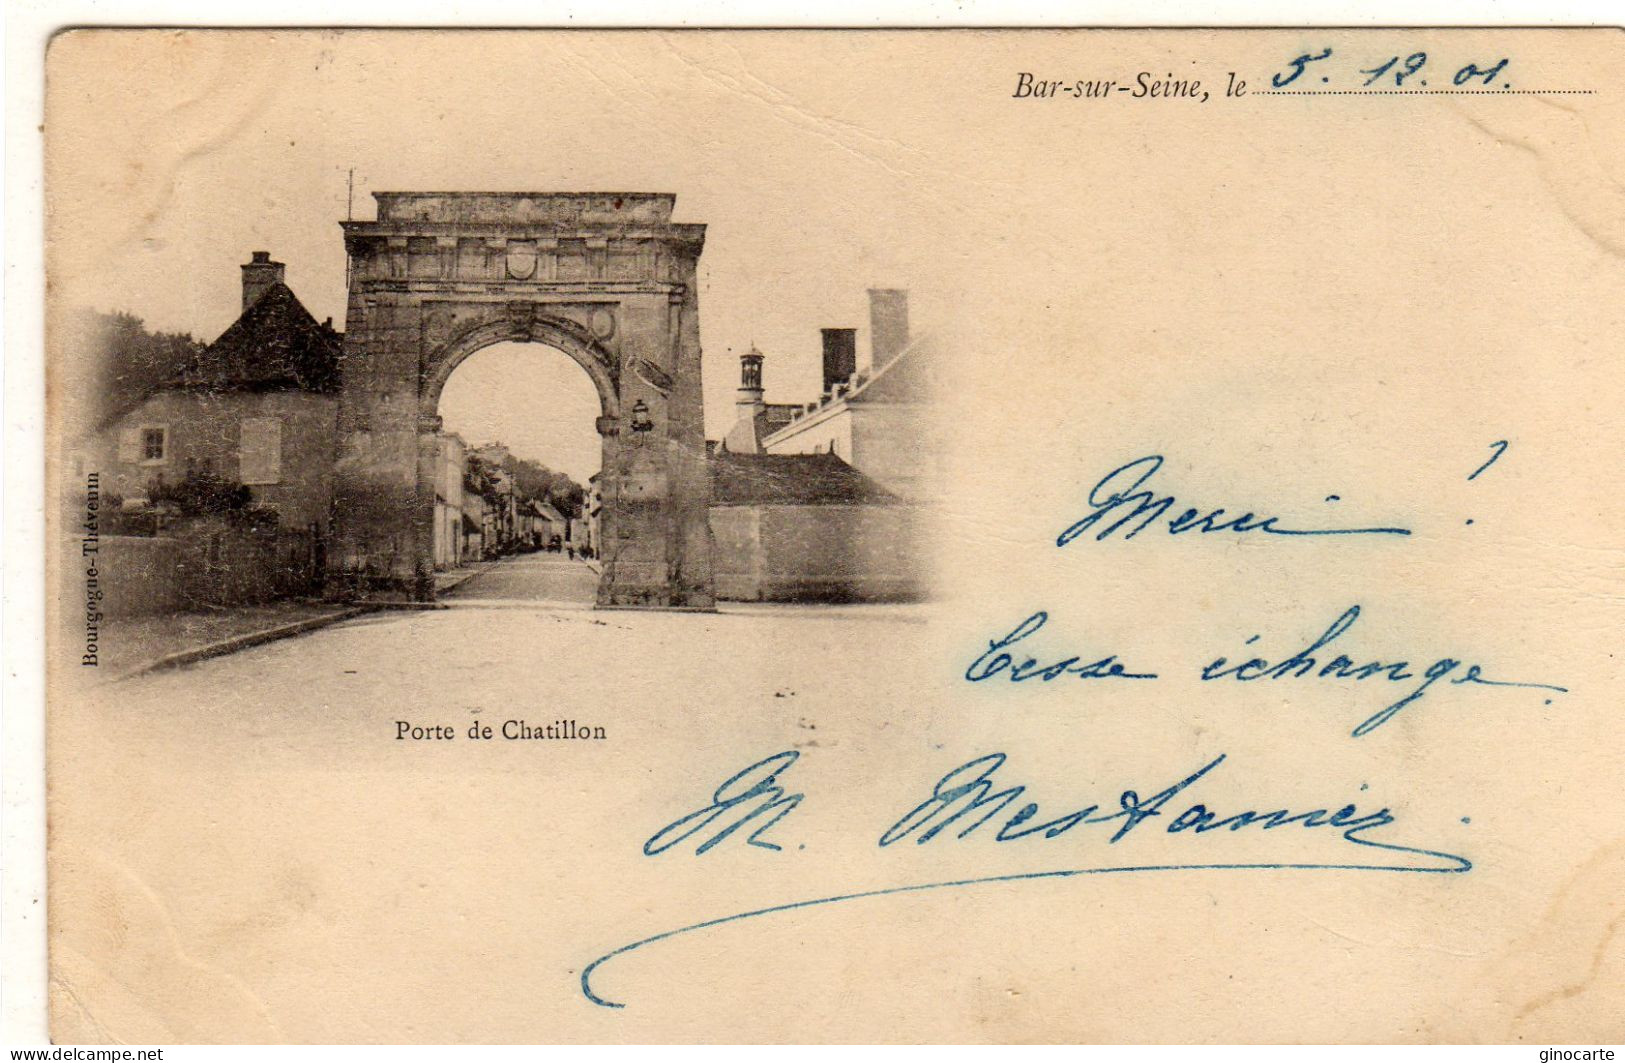 Bar-sur-Seine, le 5. 12. 01.
Bourgogne-Thévenin
Merci !
Cesse échange.
Porte de Chatillon
M. Mestanier.
www.delcampe.net
ginocarte